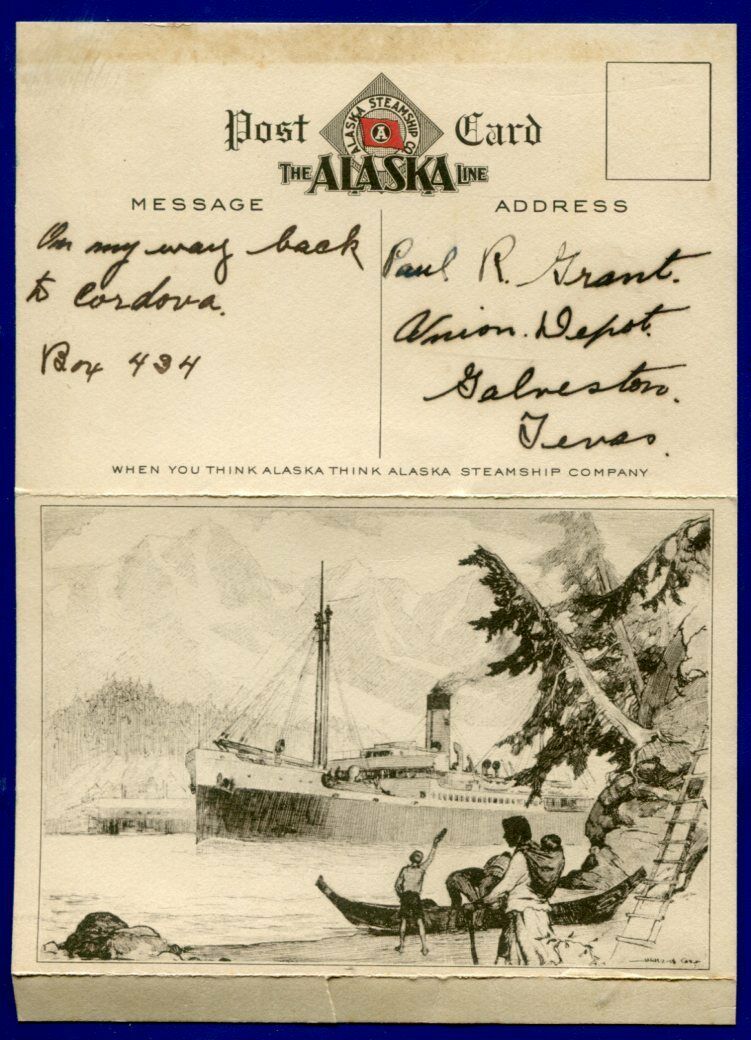 Post Card
ALASKA STEAMSHIP CO.
A
THE ALASKA LINE
MESSAGE
ADDRESS
On my way back
to Cordova.
Box 434
Paul R. Grant.
Union Depot.
Galveston.
Texas.
WHEN YOU THINK ALASKA THINK ALASKA STEAMSHIP COMPANY